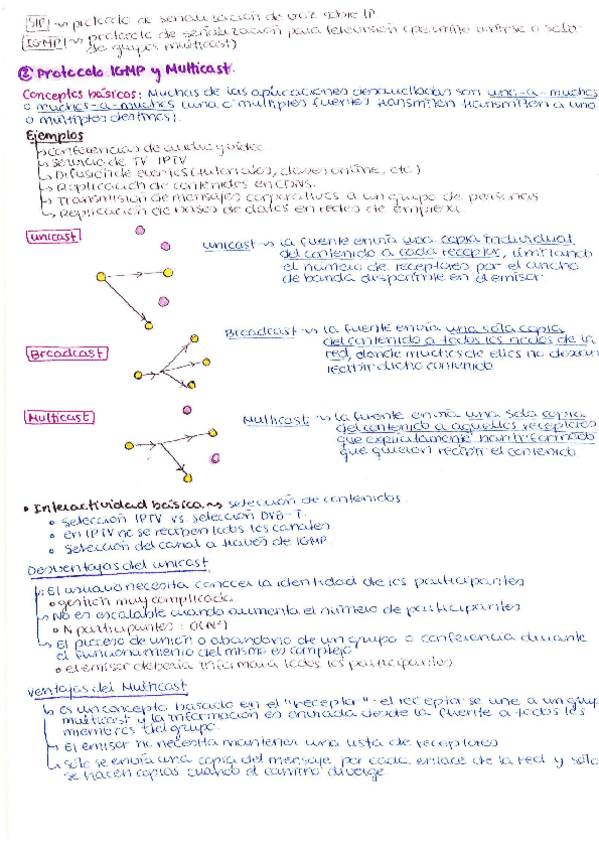 SIP ~> protocolo de señalización de voz sobre IP
IGMP ~> protocolo de señalización para televisión (permite unirse o salir
de grupos multicast)
② Protocolo IGMP y Multicast.
Conceptos básicos: Muchas de las aplicaciones desarrolladas son uno-a-muchos
o muchos-a-muchos (una o múltiples fuentes transmiten transmiten a uno
o múltiples destinos).
Ejemplos
↳ Conferencias de audio y vídeo
↳ Servicio de TV IPTV
↳ Difusión de eventos (tutoriales, clases online, etc)
↳ Replicación de contenidos en CDNs.
↳ Transmisión de mensajes corporativos a un grupo de personas
↳ Replicación de bases de datos en redes de empresa.
Unicast
Unicast ~> la fuente envía una copia individual
del contenido a cada receptor, limitando
el número de receptores por el ancho
de banda disponible en el emisor.
Broadcast
Broadcast ~> la fuente envía una sola copia
del contenido a todos los nodos de la
red, donde muchos de ellos no desean
recibir dicho contenido
Multicast
Multicast ~> la fuente envía una sola copia
del contenido a aquellos receptores
que explícitamente han informado
que quieren recibir el contenido
• Interactividad básica ~> selección de contenidos
° Selección IPTV vs selección DVB-T.
° en IPTV no se reciben todos los canales
° Selección del canal a través de IGMP.
Desventajas del unicast
↳ El usuario necesita conocer la identidad de los participantes
° gestión muy complicada
↳ No es escalable cuando aumenta el número de participantes
° N participantes : O(N²)
↳ El proceso de unión o abandono de un grupo o conferencia durante
el funcionamiento del mismo es complejo
° el emisor debería informar a todos los participantes
Ventajas del Multicast
↳ Es un concepto basado en el "receptor": el receptor se une a un grupo
multicast y la información es enviada desde la fuente a todos los
miembros del grupo.
↳ El emisor no necesita mantener una lista de receptores
↳ Sólo se envía una copia del mensaje por cada enlace de la red y sólo
se hacen copias cuando el camino diverge